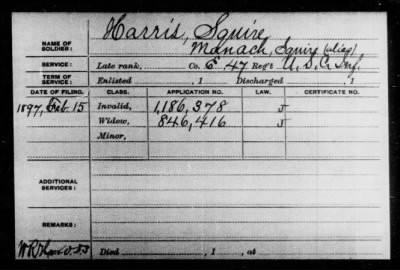 NAME OF SOLDIER: Harris, Squire
Manach, Squire (alias)
SERVICE: Late rank, Co. E 47 Reg't U.S.C. Inf.
TERM OF SERVICE: Enlisted , 1 Discharged , 1
DATE OF FILING. CLASS. APPLICATION NO. LAW. CERTIFICATE NO.
1897, Feb 15 Invalid, 1,186,378 J
Widow, 846,416 J
Minor,
ADDITIONAL SERVICES:
REMARKS:
Died , 1 , at